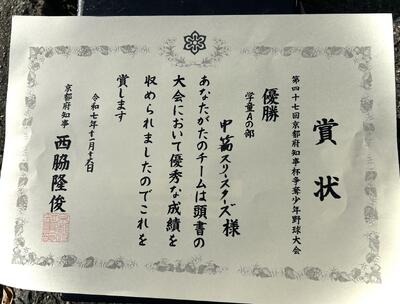 賞状
第四十七回京都府知事杯争奪少年野球大会
優勝
学童Aの部
中筋スリースターズ様
あなたがたのチームは頭書の
大会において優秀な成績を
収められましたのでこれを
賞します
令和七年十一月十六日
京都府知事 西脇隆俊